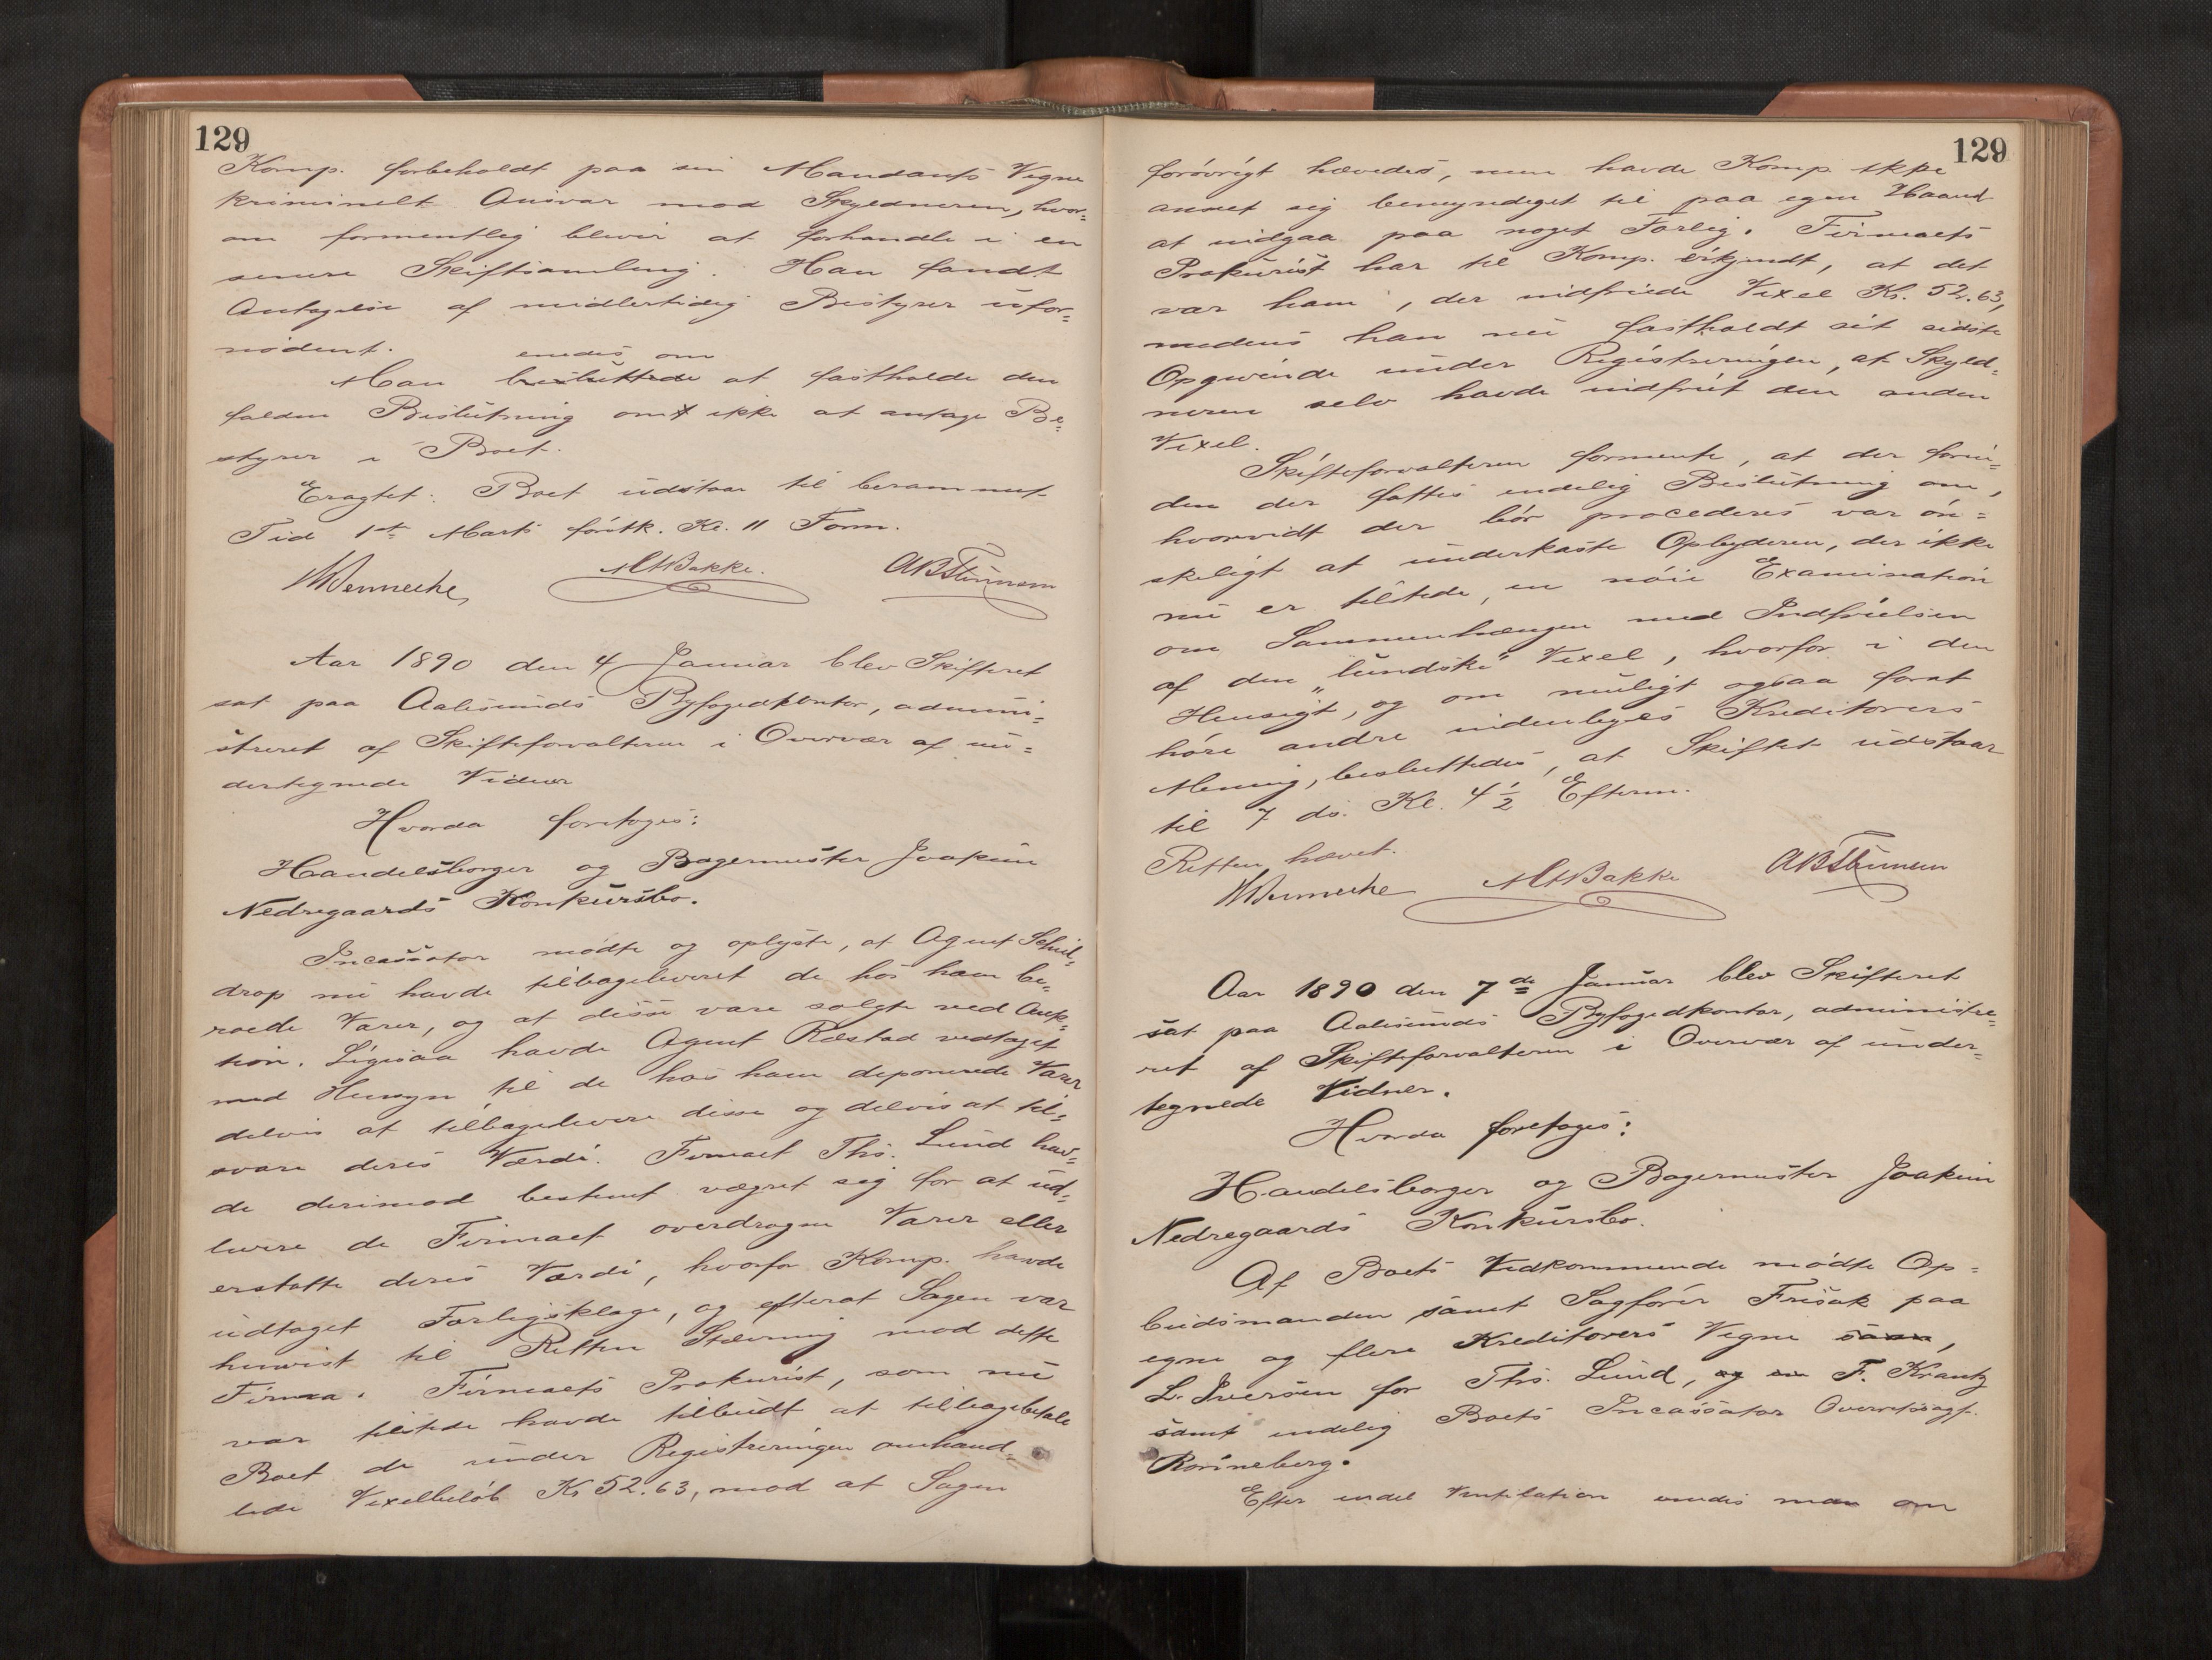 129
Komp. forbeholdt paa sin Mandants Vegne
kriminelt Ansvar mod Skyldneren, hvor=
om formentlig blevir at forhandle i en
senere Skiftsamling. Han fandt
Antagelse af midlertidig Bestyrer ufor=
nødent.
enedes om
Man besluttede at fastholde den
falden Beslutning om ikke at antage Be=
styrer i Boet.
Eragtet: Boet udstaar til berammet
Tid 1ste Marts førstk. Kl. 11 Form.
Wennecke MABakke. ABStennesen
Aar 1890 den 4 Januar blev Skifteret
sat paa Aalesunds Byfogedkontor, admini=
streret af Skifteforvalteren i Overvær af un=
dertegnede Vidner
Hvorda foretoges:
Handelsborger og Bagermester Joakim
Nedregaards Konkursbo.
Incassator mødte og oplyste, at Agent Schul=
drop nu havde tilbageleveret de hos ham be=
roede Varer, og at disse vare solgte ved Auk=
tion. Ligesaa havde Agent Ræstad vedtaget
med Hensyn til de hos ham deponerede Varer
delvis at tilbagelevere disse og delvis at til=
svare deres Værdi. Firmaet Ths. Lund hav=
de derimod bestemt vægret sig for at ud=
levere de Firmaet overdragne Varer eller
erstatte deres Værdi, hvorfor Komp. havde
udtaget Forligsklage, og efterat Sagen var
henvist til Retten Stævning mod dette
Firma. Firmaets Prokurist, som nu
var tilstede havde tilbudt at tilbagebetale
Boet de under Registreringen omhand=
lede Vexelbeløb Kr 52.63, mod at Sagen
129
forøvrigt hævedes, men havde Komp ikke
anset sig bemyndiget til paa egen Haand
at indgaa paa noget Forlig. Firmaets
Prokurist har til Komp. erkjendt, at det
var ham, der indfriede Vexel Kr. 52.63,
medens han nu fastholdt sit sidste
Opgivende under Registreringen, at Skyld=
neren selv havde indfriet den anden
Vexel.
Skifteforvalteren formente, at der forin=
den der fattes endelig Beslutning om,
hvorvidt der bør procederes var øn=
skeligt at underkaste Opbyderen, der ikke
nu er tilstede, en nøie Examination
om Sammenhængen med Indfrielsen
af den „lundske" Vexel, hvorfor i den
Hensigt, og om muligt ogsaa forat
høre andre indenbyes Kreditorers
Mening, besluttedes, at Skiftet udstaar
til 7 ds. Kl. 4 1/2 Efterm.
Retten hævet.
Wennecke MABakke ABStennesen
Aar 1890 den 7de Januar blev Skifteret
sat paa Aalesunds Byfogedkontor, administre=
ret af Skifteforvalteren i Overvær af under=
tegnede Vidner.
Hvorda foretoges:
Handelsborger og Bagermester Joakim
Nedregaards Konkursbo.
Af Boets Vedkommende mødte Op=
budsmanden samt Sagfører Frisak paa
egne og flere Kreditorers Vegne sam,
L. Iversen for Ths. Lund, og F. Krantz
samt endelig Boets Incassator Overretssagf.
Ronneberg.
Efter endel Ventilation enedes man om